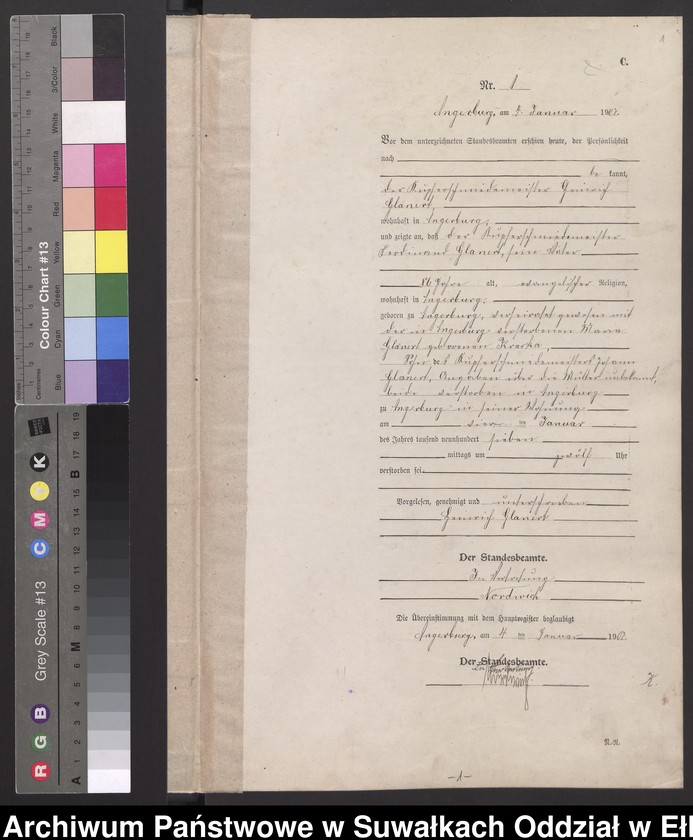 1
C.
Nr. 1
Angerburg, am 4. Januar 1907.
Vor dem unterzeichneten Standesbeamten erschien heute, der Persönlichkeit
nach
be kannt,
der Kupferschmiedemeister Heinrich
Glanert,
wohnhaft in Angerburg,
und zeigte an, daß der Kupferschmiedemeister
Ferdinand Glanert, sein Vater
86 Jahre alt, evangelischer Religion,
wohnhaft in Angerburg,
geboren zu Angerburg, verheiratet gewesen mit
der in Angerburg verstorbenen Maria
Glanert geborenen
Sohn des Kupferschmiedemeisters Johann
Glanert, Angaben über die Mutter unbekannt,
beide verstorben in Angerburg
zu Angerburg in seiner Wohnung
am vier ten Januar
des Jahres tausend neunhundert sieben
mittags um zwölf Uhr
verstorben sei.
Vorgelesen, genehmigt und unterschrieben
Heinrich Glanert
Der Standesbeamte.
In Vertretung
Nordwich
Die Übereinstimmung mit dem Hauptregister beglaubigt
Angerburg, am 4 ten Januar 1907.
Der Standesbeamte.
In Vertretung
N.N.
-1-
Colour Chart #13
Blue
Cyan
Green
Yellow
Red
Magenta
White
3/Color
Black
Centimetres
Grey Scale #13
R G B
C M Y K
A 1 2 3 4 5 6 M 8 9 10 11 12 13 14 15 B 17 18 19
Archiwum Państwowe w Suwałkach Oddział w Eł